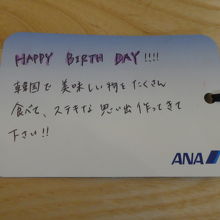 HAPPY BIRTH DAY!!!!
韓国で美味しい物をたくさん
食べて、ステキな思い出作ってきて
下さい!!
ANA